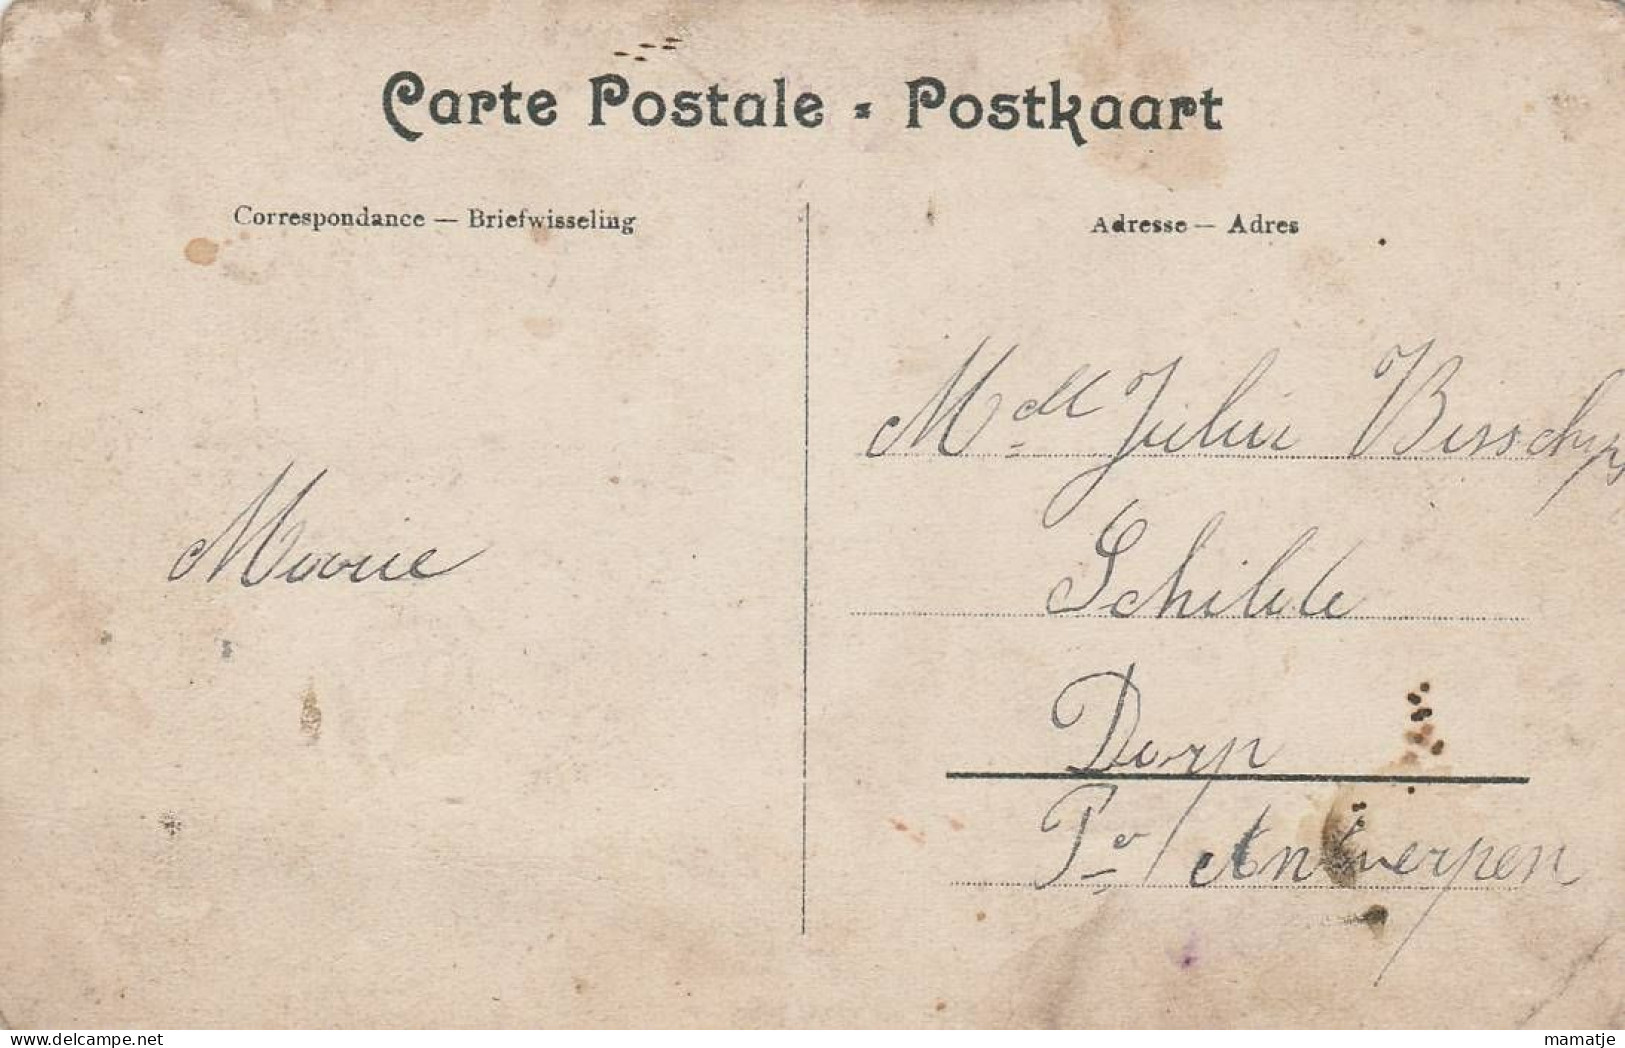 Carte Postale - Postkaart
Correspondance — Briefwisseling
Adresse — Adres
Mdlle Julia Bisschops
Schilde
Moorie
Dorp
Pr Antwerpen
https://www.delcampe.net
mamatje